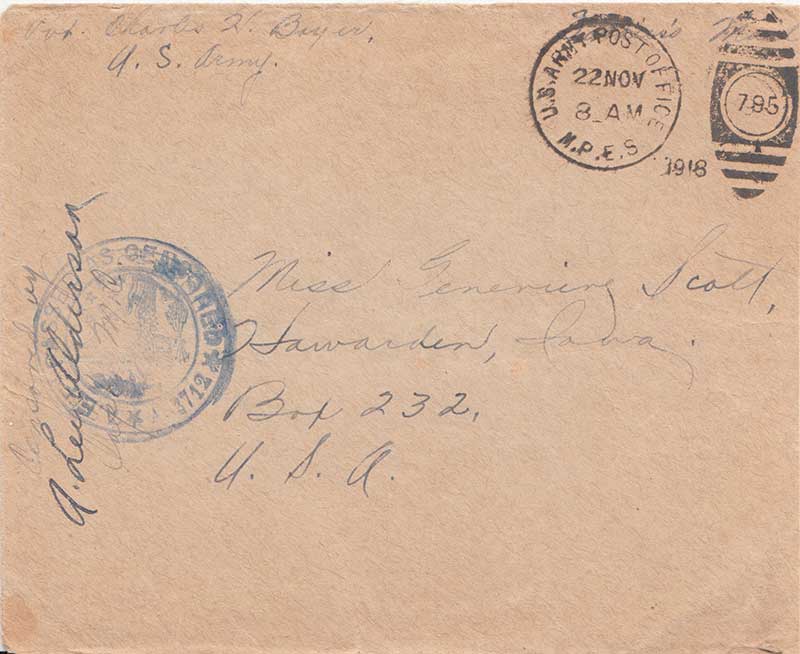 Pvt. Charles H. Boyer,
U. S. Army.
Soldier's Mail
U.S. ARMY POST OFFICE
22 NOV
8 AM
M.P.E.S.
1918
795
Censored by
A. Lew Alderson
A.E.F. PASSED AS CENSORED
A 3712
Miss Genevieve Scott,
Hawarden, Iowa.
Box 232,
U. S. A.